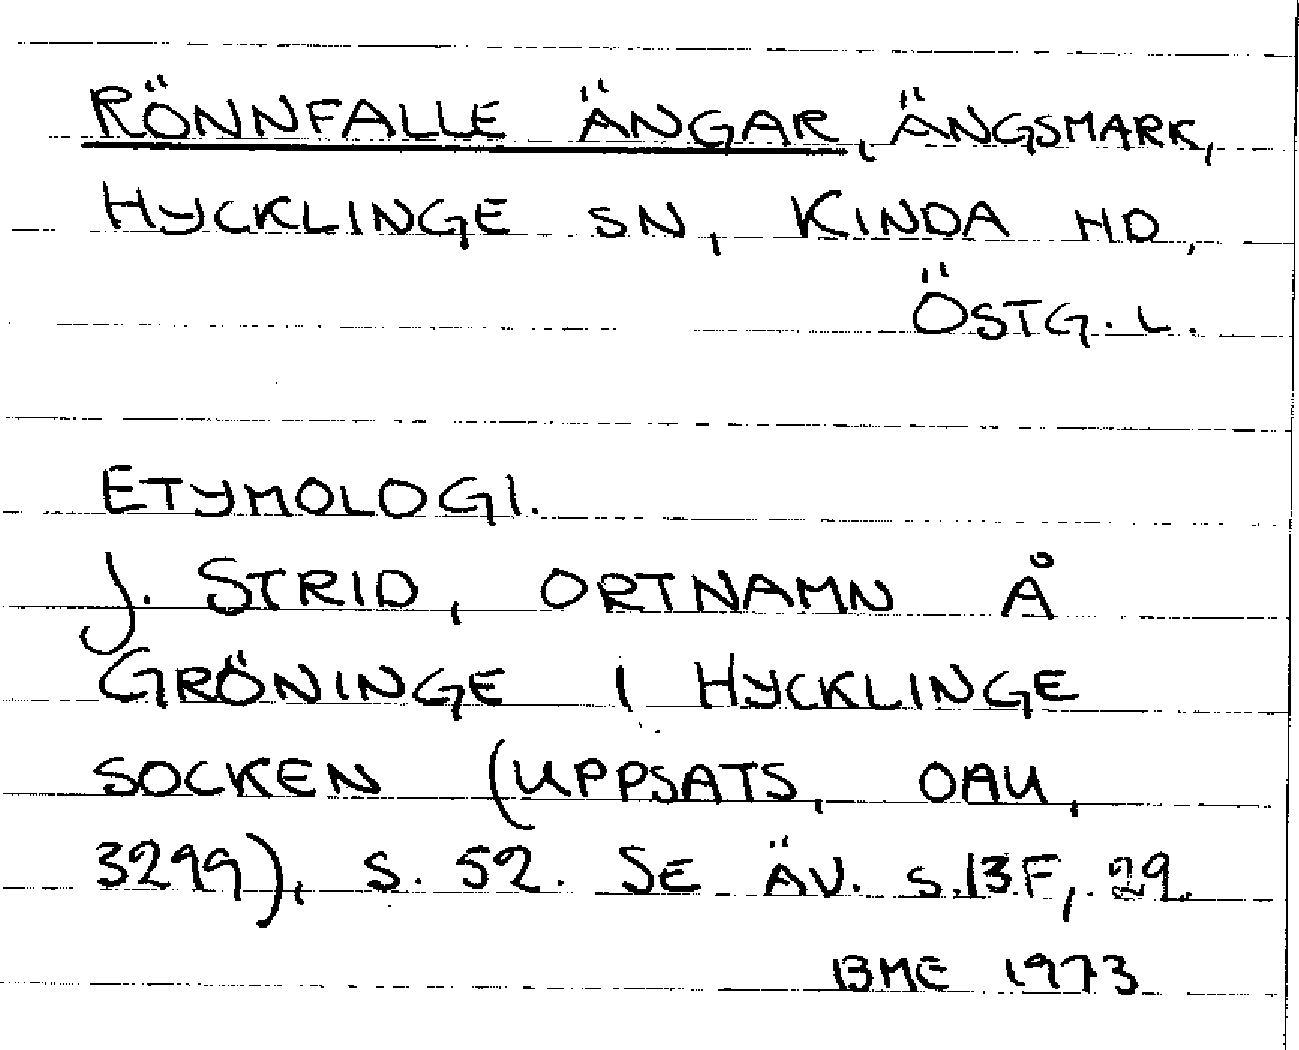 RÖNNFALLE ÄNGAR, ÄNGSMARK,
HYCKLINGE SN, KINDA HD,
ÖSTG. L.
ETYMOLOGI.
J. STRID, ORTNAMN Å
GRÖNINGE I HYCKLINGE
SOCKEN (UPPSATS, OAU,
3299), S. 52. SE ÄV. S. 13 F, 29.
BME 1973